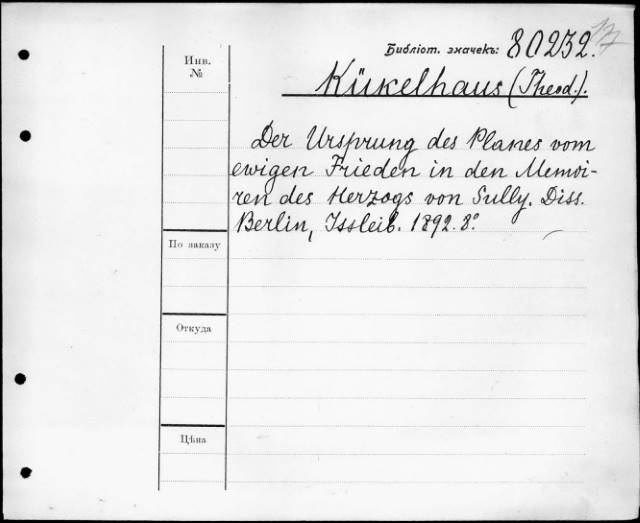 Библіот. значекъ: 80232.
17
Инв.
№
Kükelhaus (Theod.).
Der Ursprung des Planes vom
ewigen Frieden in den Memoi-
ren des Herzogs von Sully. Diss.
Berlin, Issleib. 1892. 8º
По заказу
Откуда
Цѣна